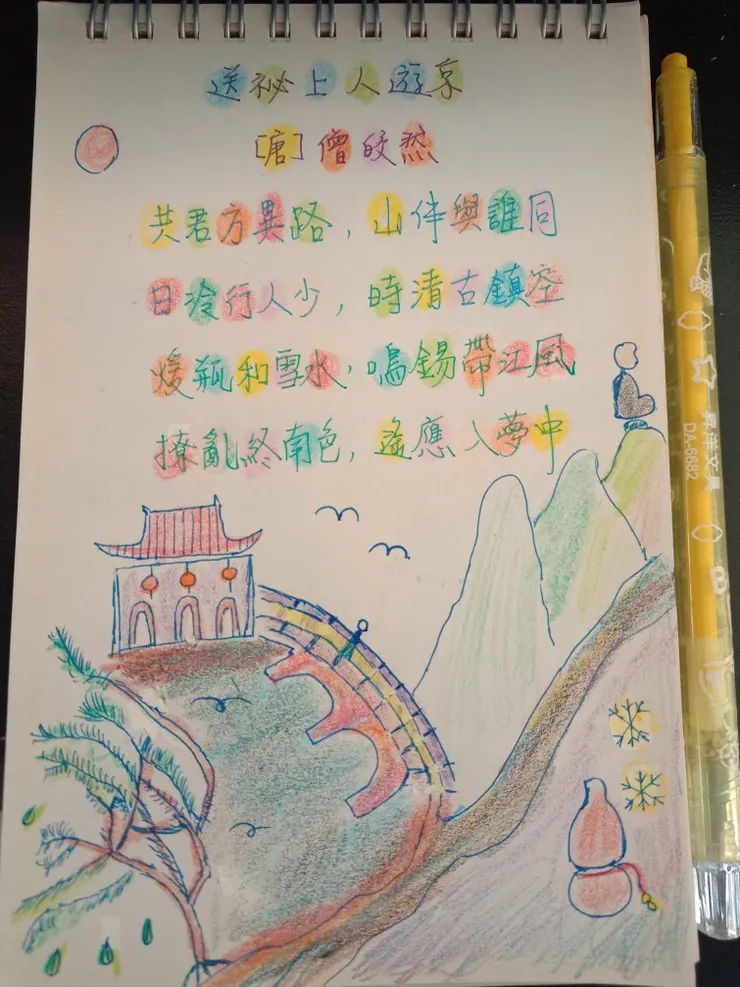 送祕上人遊京
[唐]僧皎然
共君方異路，山伴與誰同
日冷行人少，時清古鎮空
煖瓶和雪水，鳴錫帶江風
撩亂終南色，遙應入夢中
DA-6682
B